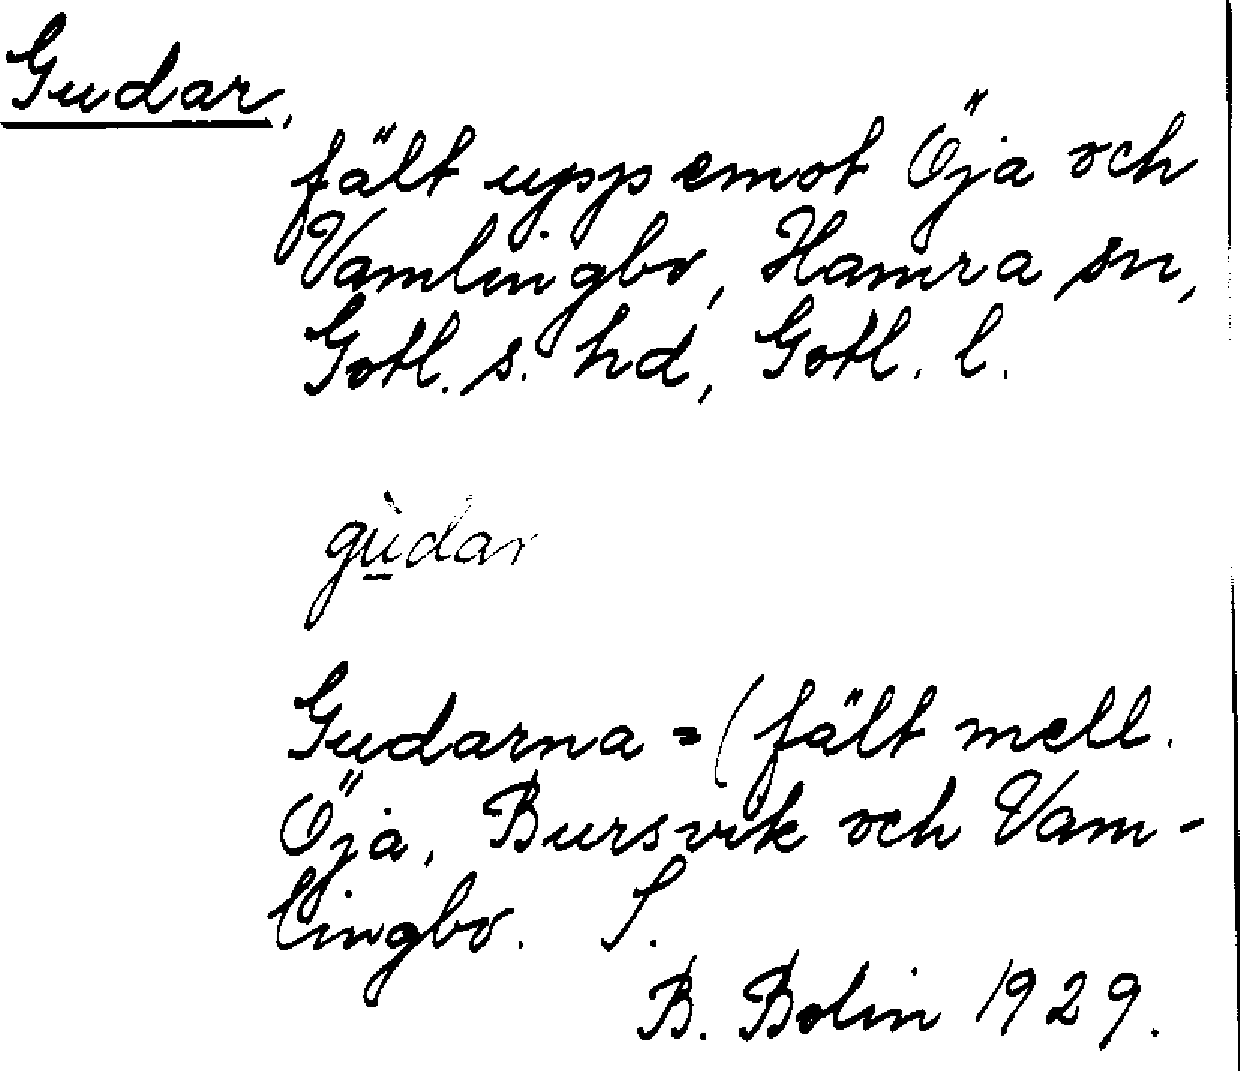 Gudar,
fält upp emot Öja och
Vamlingbo, Hamra sn,
Gotl. s. hd, Gotl. l.
gùdar
Gudarna = (fält mell.
Öja, Bursvik och Vam-
lingbo. S.
B. Bolin 1929.